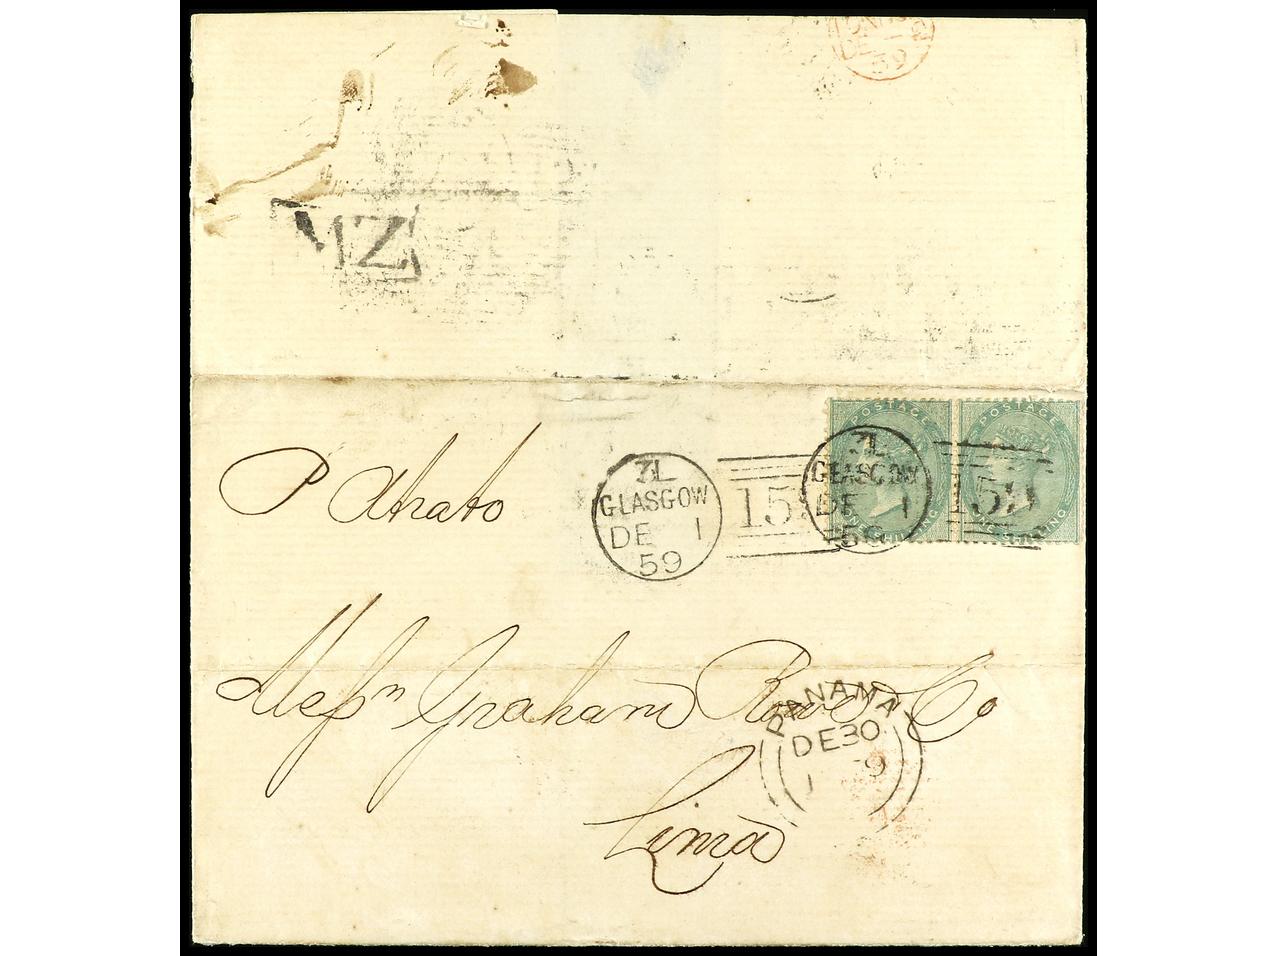 DE 2
59
MZ
POSTAGE POSTAGE
ONE SHILLING ONE SHILLING
P Atrato
7L
GLASGOW
DE 1
59
15
7L
GLASGOW
DE 1
59
159
Messrs Graham Rowe & Co
Lima
PANAMA
DE 30
1 9